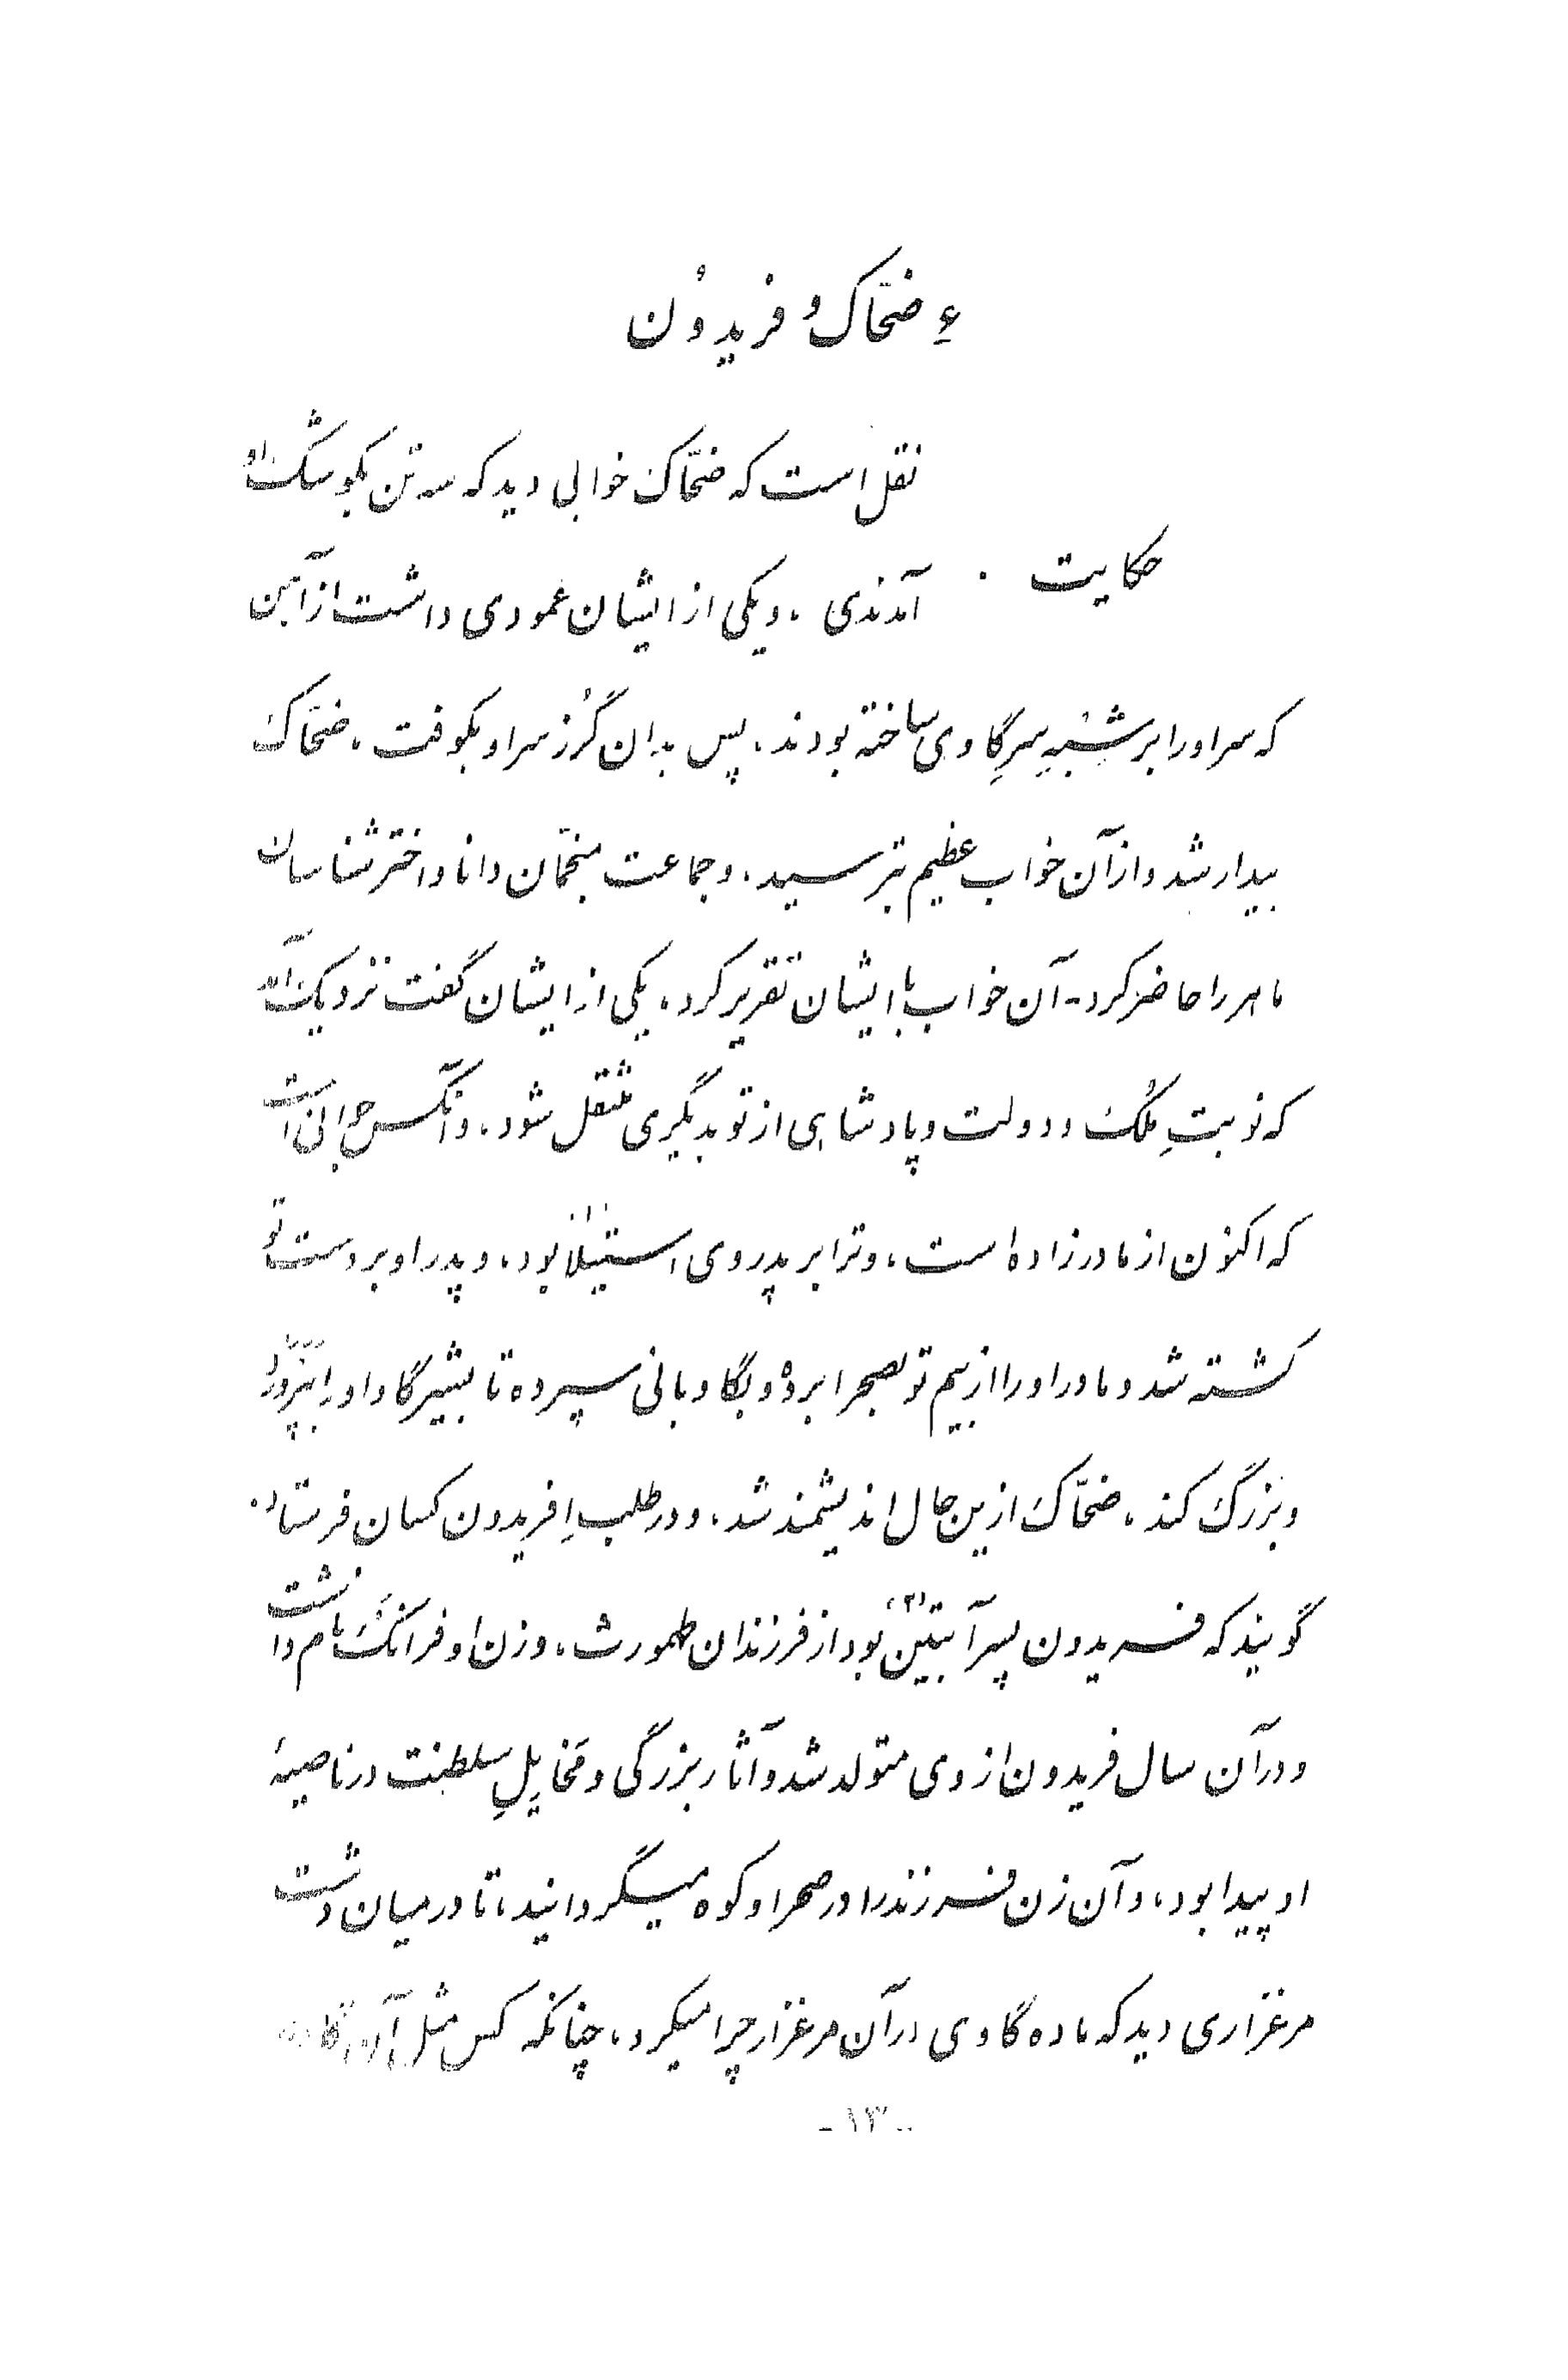 ۴ ضحّاک و فریدون
نقل است که ضحّاک خوابی دید که سه تن بکوشک او
حکایت ۰
آمدندی ، و یکی از ایشان عمودی داشت از آهن
که سر او را بر شبیهِ سرِ گاوی ساخته بودند ، پس بدان گُرز سر او بکوفت ، ضحّاک
بیدار شد و از آن خواب عظیم بترسید ، و جماعت منجّمان دانا و اختر شناسان
ماهر را حاضر کرد - آن خواب با ایشان تقریر کرد ، یکی از ایشان گفت نزدیک آمد
که نوبتِ مُلک و دولت و پادشاهی از تو بدیگری منتقل شود ، و آنکس جوانی است
که اکنون از مادر زاده است ، و ترا بر پدر وی استیلا بود ، و پدر او بر دست تو
کشته شد و مادر او را از بیم تو بصحرا برده و بگاوبانی سپرده تا بشیر گاو او را بپرورد
و بزرگ کند ، ضحّاک ازین حال اندیشمند شد ، و در طلبِ افریدون کسان فرستاد.
گویند که فریدون پسر آبتین (۲) بود از فرزندان طهمورث ، و زن او فرانک نام داشت
و در آن سال فریدون از وی متولد شد و آثار بزرگی و مَخایِلِ سلطنت در ناصیهٔ
او پیدا بود ، و آن زن فرزند را در صحرا و کوه میگردانید ، تا در میان دشت
مرغزاری دید که ماده گاوی در آن مرغزار چرا میکرد ، چنانکه کس مثل آن
- ۱۳ -